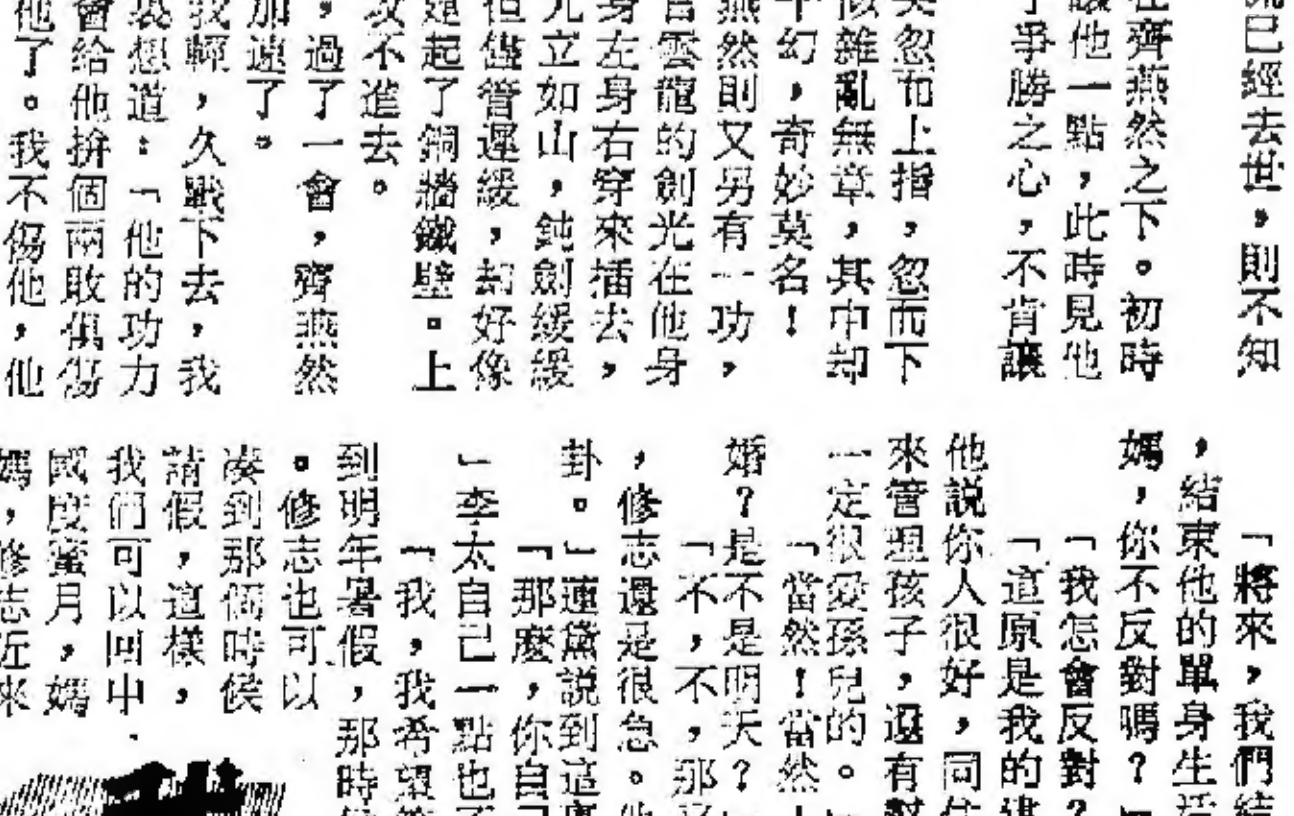 已經去世，則不知
在齊燕然之下。初時
讓他一點，此時見他
爭勝之心，不肯讓
忽而上指，忽而下
雜亂無章，其中却
幻，奇妙莫名！
燕然則又另有一功，
雲龍的劍光在他身
身左身右穿來插去，
立如山，鈍劍緩緩
但儘管遲緩，却好像
起了銅牆鐵壁。上
攻不進去。
，過了一會，齊燕然
加速了。
我輕，久戰下去，我
想道：「他的功力
會給他拚個兩敗俱傷
他了。我不傷他，他
「將來，我們結
，結束他的單身生活
媽，你不反對嗎？」
「我怎會反對？
「這原是我的建
他說你人很好，同住
來管理孩子，還有幫
一定很愛孫兒的。」
「當然！當然！
婚？是不是明天？」
「不，不，不，那
，修志還是很急。他
卦。」蓮黛說到這裏
「那麼，你自己
」李太自己一點也不
「我，我希望等
到明年暑假，那時
。修志也可以
湊到那個時候
請假，這樣，
我們可以回中
國度蜜月，媽
媽，修志近來